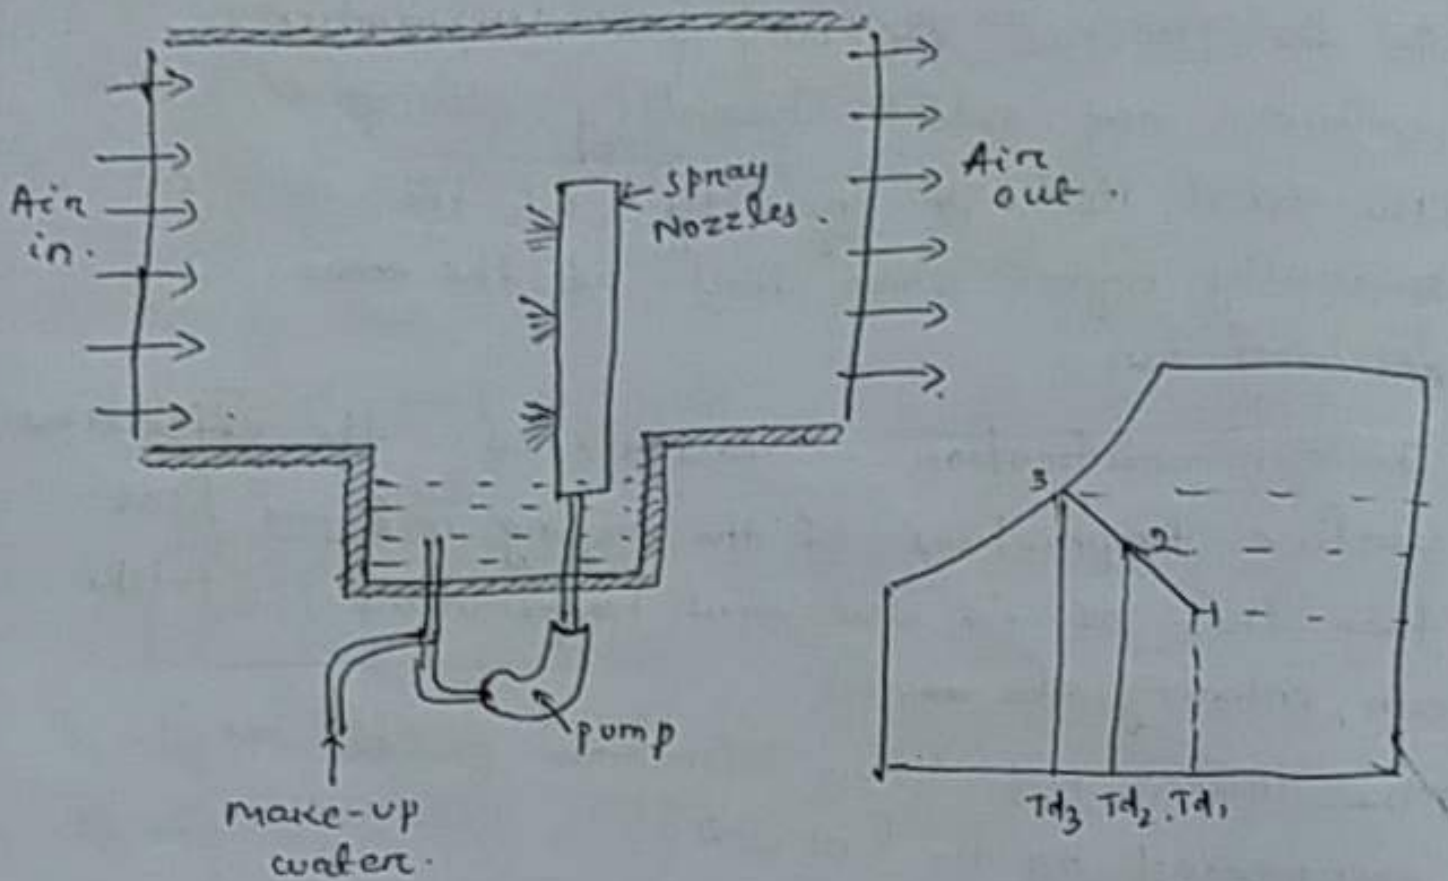 Air
in.
spray
Nozzles.
Air
out.
pump
Make-up
water.
3
2
1
Td3 Td2 Td1